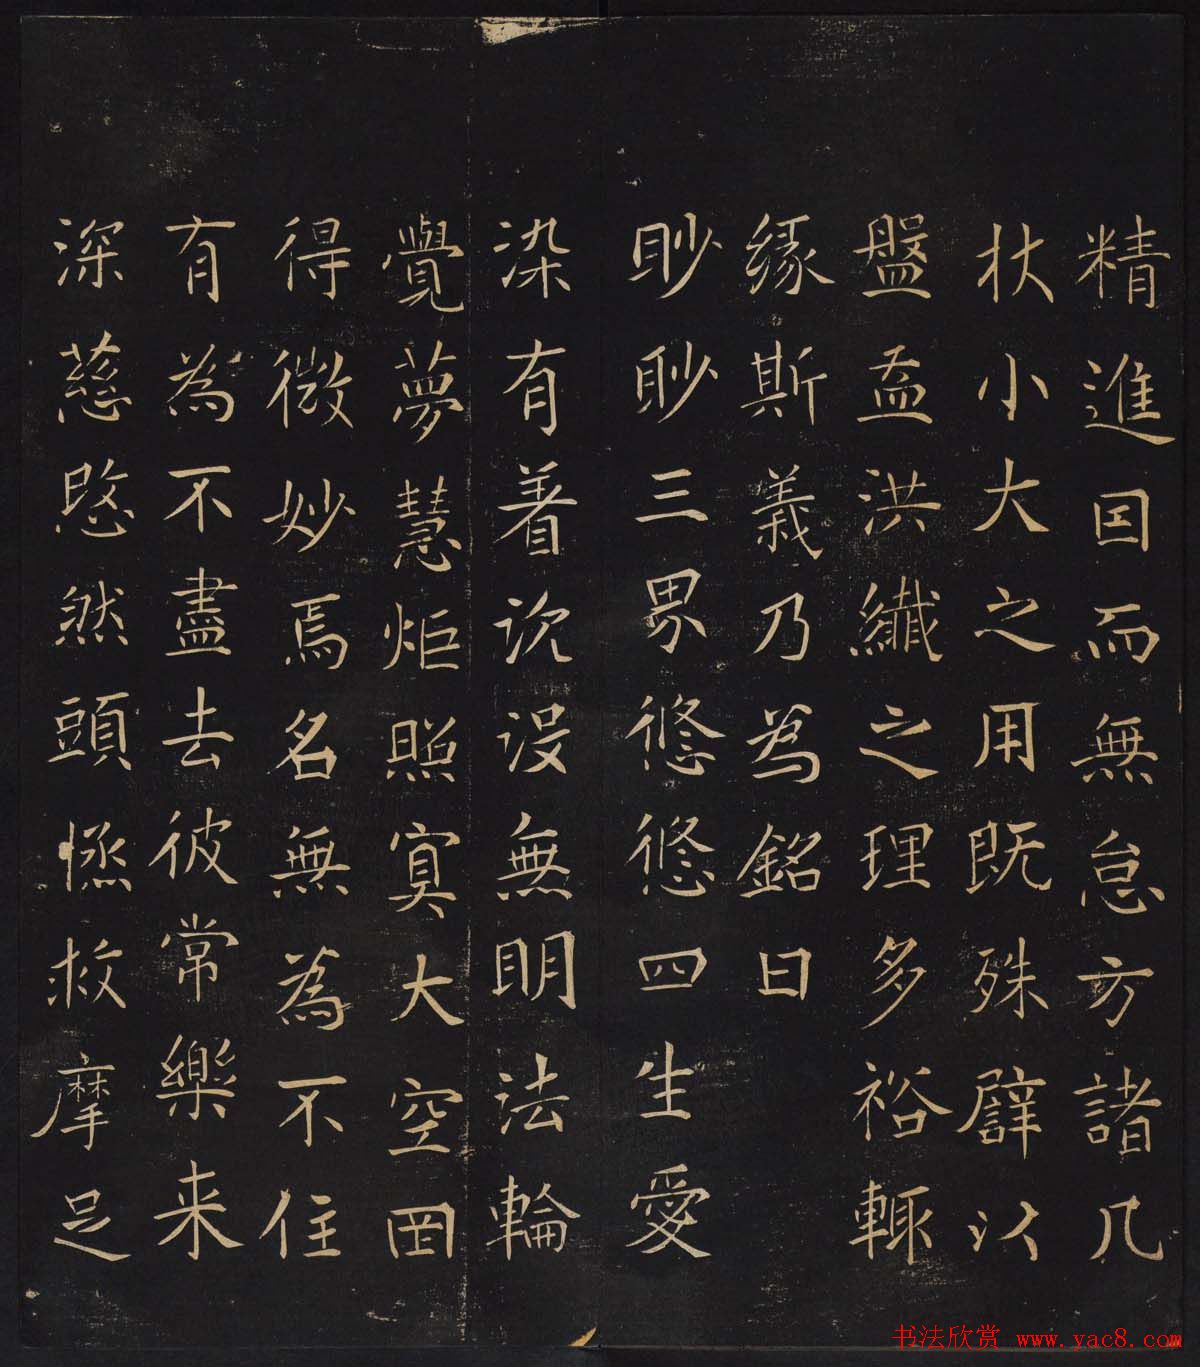 精進因而無怠方諸几
杖小大之用既殊譬以
盤盂洪纖之理多裕輒
緣斯義乃為銘曰
眇眇三界悠悠四生愛
染有着沈没無明法輪
覺夢慧炬照冥大空罔
得微妙焉名無為不住
有為不盡去彼常樂来
深慈愍然頭拯救摩足
书法欣赏 www.yac8.com